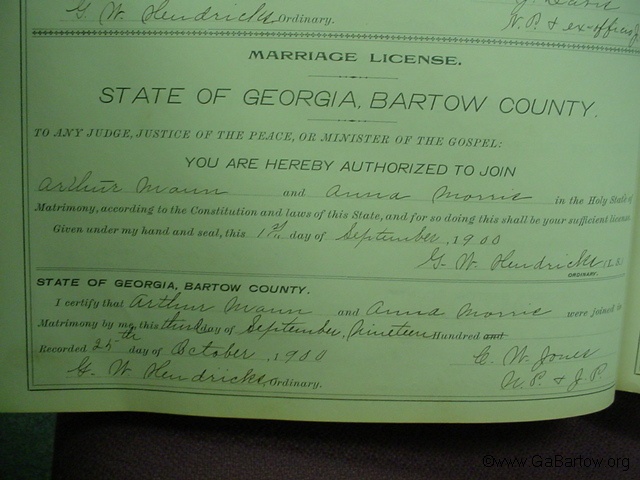 G. W. Hendricks, Ordinary.
N. P. & ex-officio J
MARRIAGE LICENSE.
STATE OF GEORGIA, BARTOW COUNTY.
TO ANY JUDGE, JUSTICE OF THE PEACE, OR MINISTER OF THE GOSPEL:
YOU ARE HEREBY AUTHORIZED TO JOIN
Arthur Mann and Anna Morris in the Holy State of
Matrimony, according to the Constitution and laws of this State, and for so doing this shall be your sufficient license.
Given under my hand and seal, this 1st day of September, 1900
G. W. Hendricks (L. S.)
ORDINARY.
STATE OF GEORGIA, BARTOW COUNTY.
I certify that Arthur Mann and Anna Morris were joined in
Matrimony by me, this third day of September, Nineteen Hundred and
Recorded 25th day of October, 1900
C. W. Jones
G. W. Hendricks, Ordinary.
N. P. & J. P.
©www.GaBartow.org